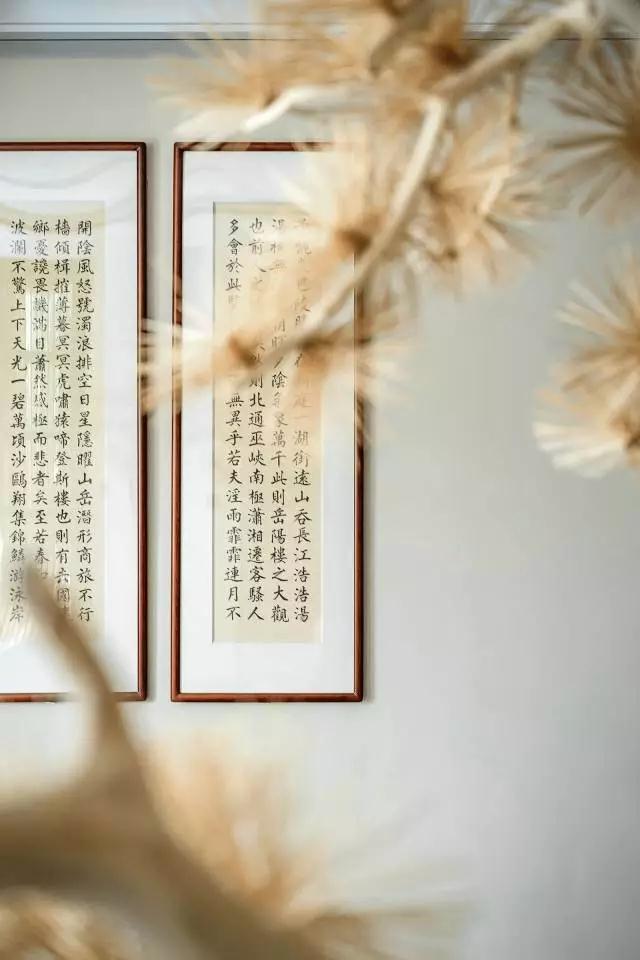 一湖銜遠山吞長江浩浩湯
陰氣象萬千此則岳陽樓之大觀
也前人之 則北通巫峽南極瀟湘遷客騷人
多會於此 無異乎若夫淫雨霏霏連月不
開陰風怒號濁浪排空日星隱曜山岳潛形商旅不行
檣傾楫摧薄暮冥冥虎嘯猿啼登斯樓也則有去國
鄉憂讒畏譏滿目蕭然感極而悲者矣至若春
波瀾不驚上下天光一碧萬頃沙鷗翔集錦鱗游泳岸